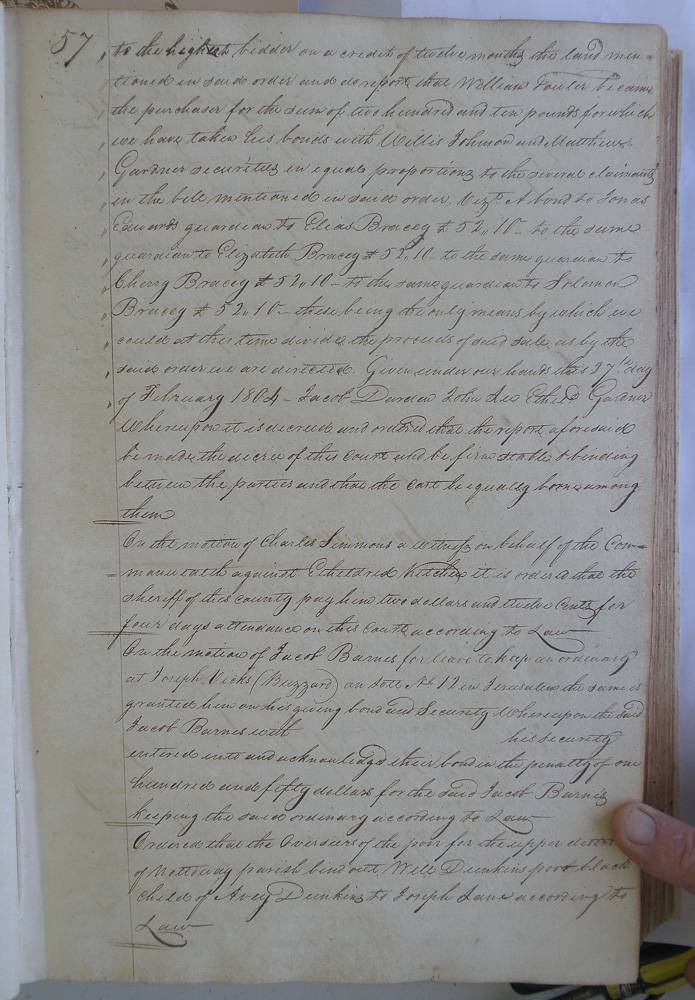 57
to the highest bidder on a credit of twelve months the land men=
tioned in said order and do report that William Fowler became
the purchaser for the sum of two hundred and ten pounds for which
we have taken his bonds with Willis Johnson and Matthew
Gardner securities in equal proportions to the several claimants
in the bill mentioned in said order. Vizt. A bond to Jonas
Edwards guardian to Elias Bracey £ 52,,10 - to the same
guardian to Elizabeth Bracey £ 52,,10 - to the same guardian to
Cherry Bracey £ 52,,10 - to the same guardian to Solomon
Bracey £ 52,,10 - these being the only means by which we
could at this time divide the proceeds of said sale, as by the
said order we are directed. Given under our hands this 27th day
of February 1804 - Jacob Darden John Ethed. Gardner
Whereupon it is decreed and ordered that the report aforesaid
be made the decree of this Court and be firm stable & binding
between the parties and that the cost be equally borne among
them
On the motion of Charles Simmons a witness on behalf of the Com=
=monwealth against Etheldred Kitchen it is ordered that the
sheriff of this county pay him two dollars and twelve Cents for
four days attendance on this Court according to Law
On the motion of Jacob Barnes for leave to keep an ordinary
at Joseph Vicks (Buzzard) on lott No 12 in Jerusalem the same is
granted him on his giving bond and Security Whereupon the said
Jacob Barnes with his security
entered into and acknowledged their bond in the penalty of one
hundred and fifty dollars for the said Jacob Barnes
keeping the said ordinary according to Law
Ordered that the Overseers of the poor for the upper district
of Nottoway parish bind out Will Dunkins poor black
child of Avey Dunkins to Joseph Lane according to
Law